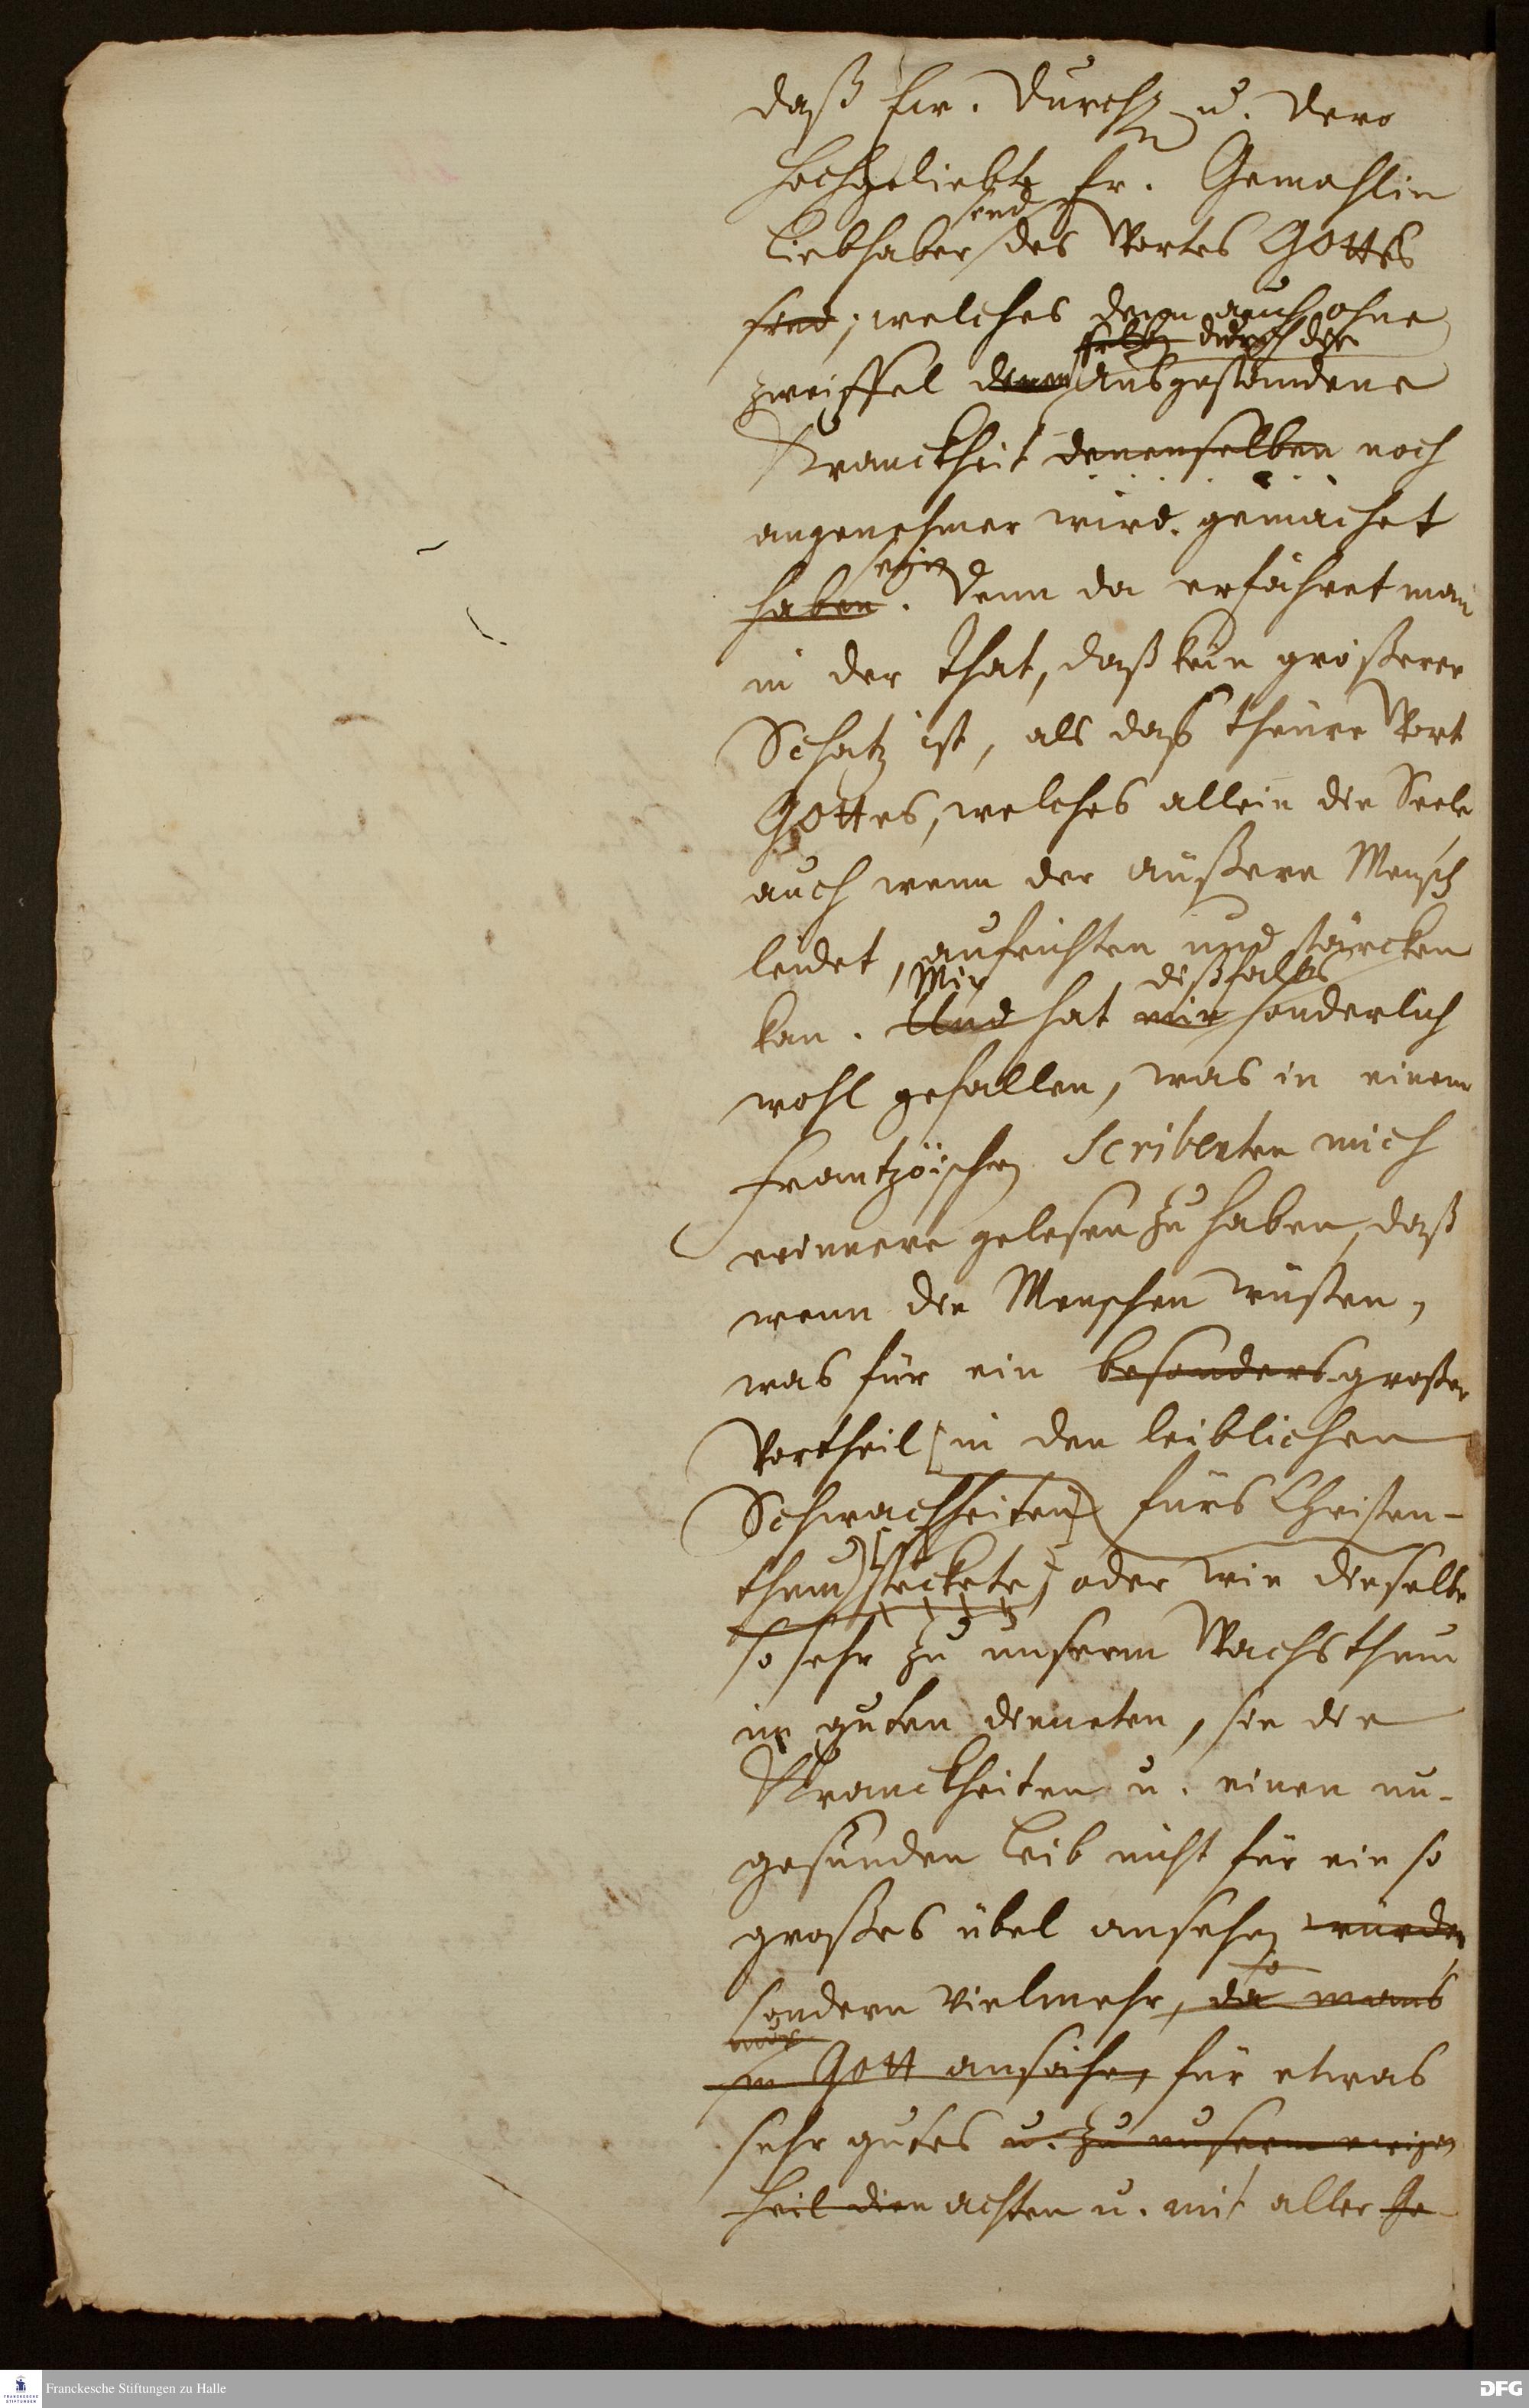 daß Ew. Durchl. u. dero
hochgeliebte Fr. Gemahlin
sind
Liebhaber des Wortes GOttes
sind, welches denn auch ohne
selbst durch die
zweiffel denen ausgestandene
Kranckheit denenselben noch
angenehmer wird. gemachet
seyn
haben. Denn da erfähret man
in der That, daß kein größerer
Schatz ist, als daß theure Wort
GOttes, welches allein die Seele
auch wenn der äußere Mensch
leidet, aufrichten und stärcken
Mir dißfalls
kan. Und hat mir sonderlich
wohl gefallen, was in einem
Frantzöischen Scribenten mich
erinnere gelesen zu haben, daß
wenn die Menschen wüsten,
was für ein besonders großer
Vortheil in den leiblichen
Schwachheiten fürs Christen-
thum steckete oder wie dieselbe
so sehr zu unserm Wachsthum
im guten dieneten, sie die
Kranckheiten u. einen un-
gesunden Leib nicht für ein so
großes übel ansehen würden
so
sondern vielmehr, da mans
nur
in Gott ansähe, für etwas
sehr gutes u. zu unserm ewigen
Heil dien achten u. mit aller Ge
Franckesche Stiftungen zu Halle
DFG